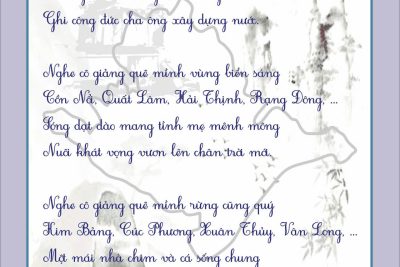 Ghi công đức cha ông xây dựng nước.
Nghe cô giảng quê mình vùng biển sáng
Cồn Quất Lâm, Hải Thịnh, Rạng Đông, ...
Sóng dạt dào mang tình mẹ mênh mông
Nuôi khát vọng vươn lên chân trời mới.
Nghe cô giảng quê mình rừng cũng quý
Kim Bảng, Cúc Phương, Xuân Thủy, Vân Long, ...
Một mái nhà chim và cá sống chung